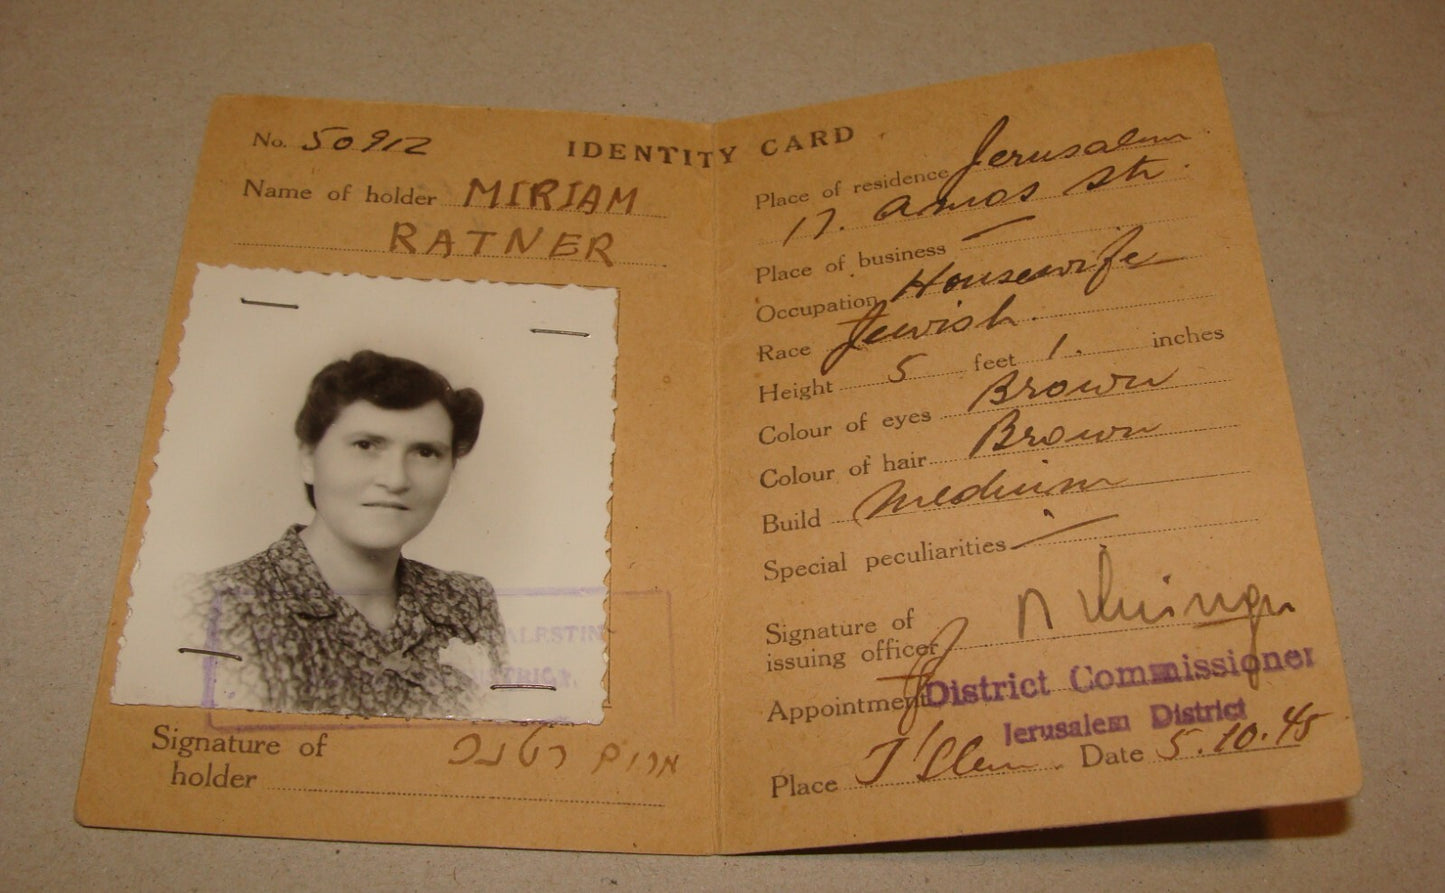 IDENTITY CARD
No. 50912
Name of holder MIRIAM
RATNER
ALESTIN
Signature of
holder מרים רטנר
Place of residence Jerusalem
17. Amos Str.
Place of business —
Occupation Housewife
Race Jewish.
Height 5 feet 1. inches
Colour of eyes Brown
Colour of hair Brown
Build Medium
Special peculiarities —
Signature of
issuing officer
Appointment District Commissioner
Jerusalem District
Place J'Slem. Date 5.10.45